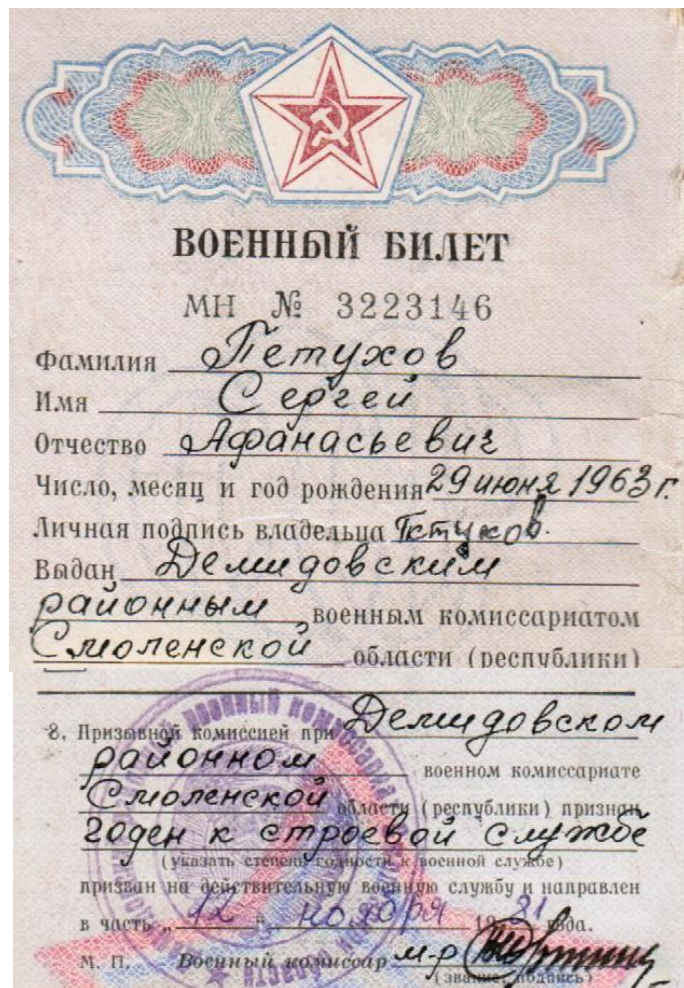 ВОЕННЫЙ БИЛЕТ
МН № 3223146
Фамилия Петухов
Имя Сергей
Отчество Афанасьевич
Число, месяц и год рождения 29 июня 1963 г.
Личная подпись владельца Петухов.
Выдан Демидовским
районным военным комиссариатом
Смоленской области (республики)
8. Призывной комиссией при Демидовском
районном военном комиссариате
Смоленской области (республики) признан
годен к строевой службе
(указать степень годности к военной службе)
призван на действительную военную службу и направлен
в часть „12" ноября 1981 года.
М. П. Военный комиссар м-р
(звание, подпись)